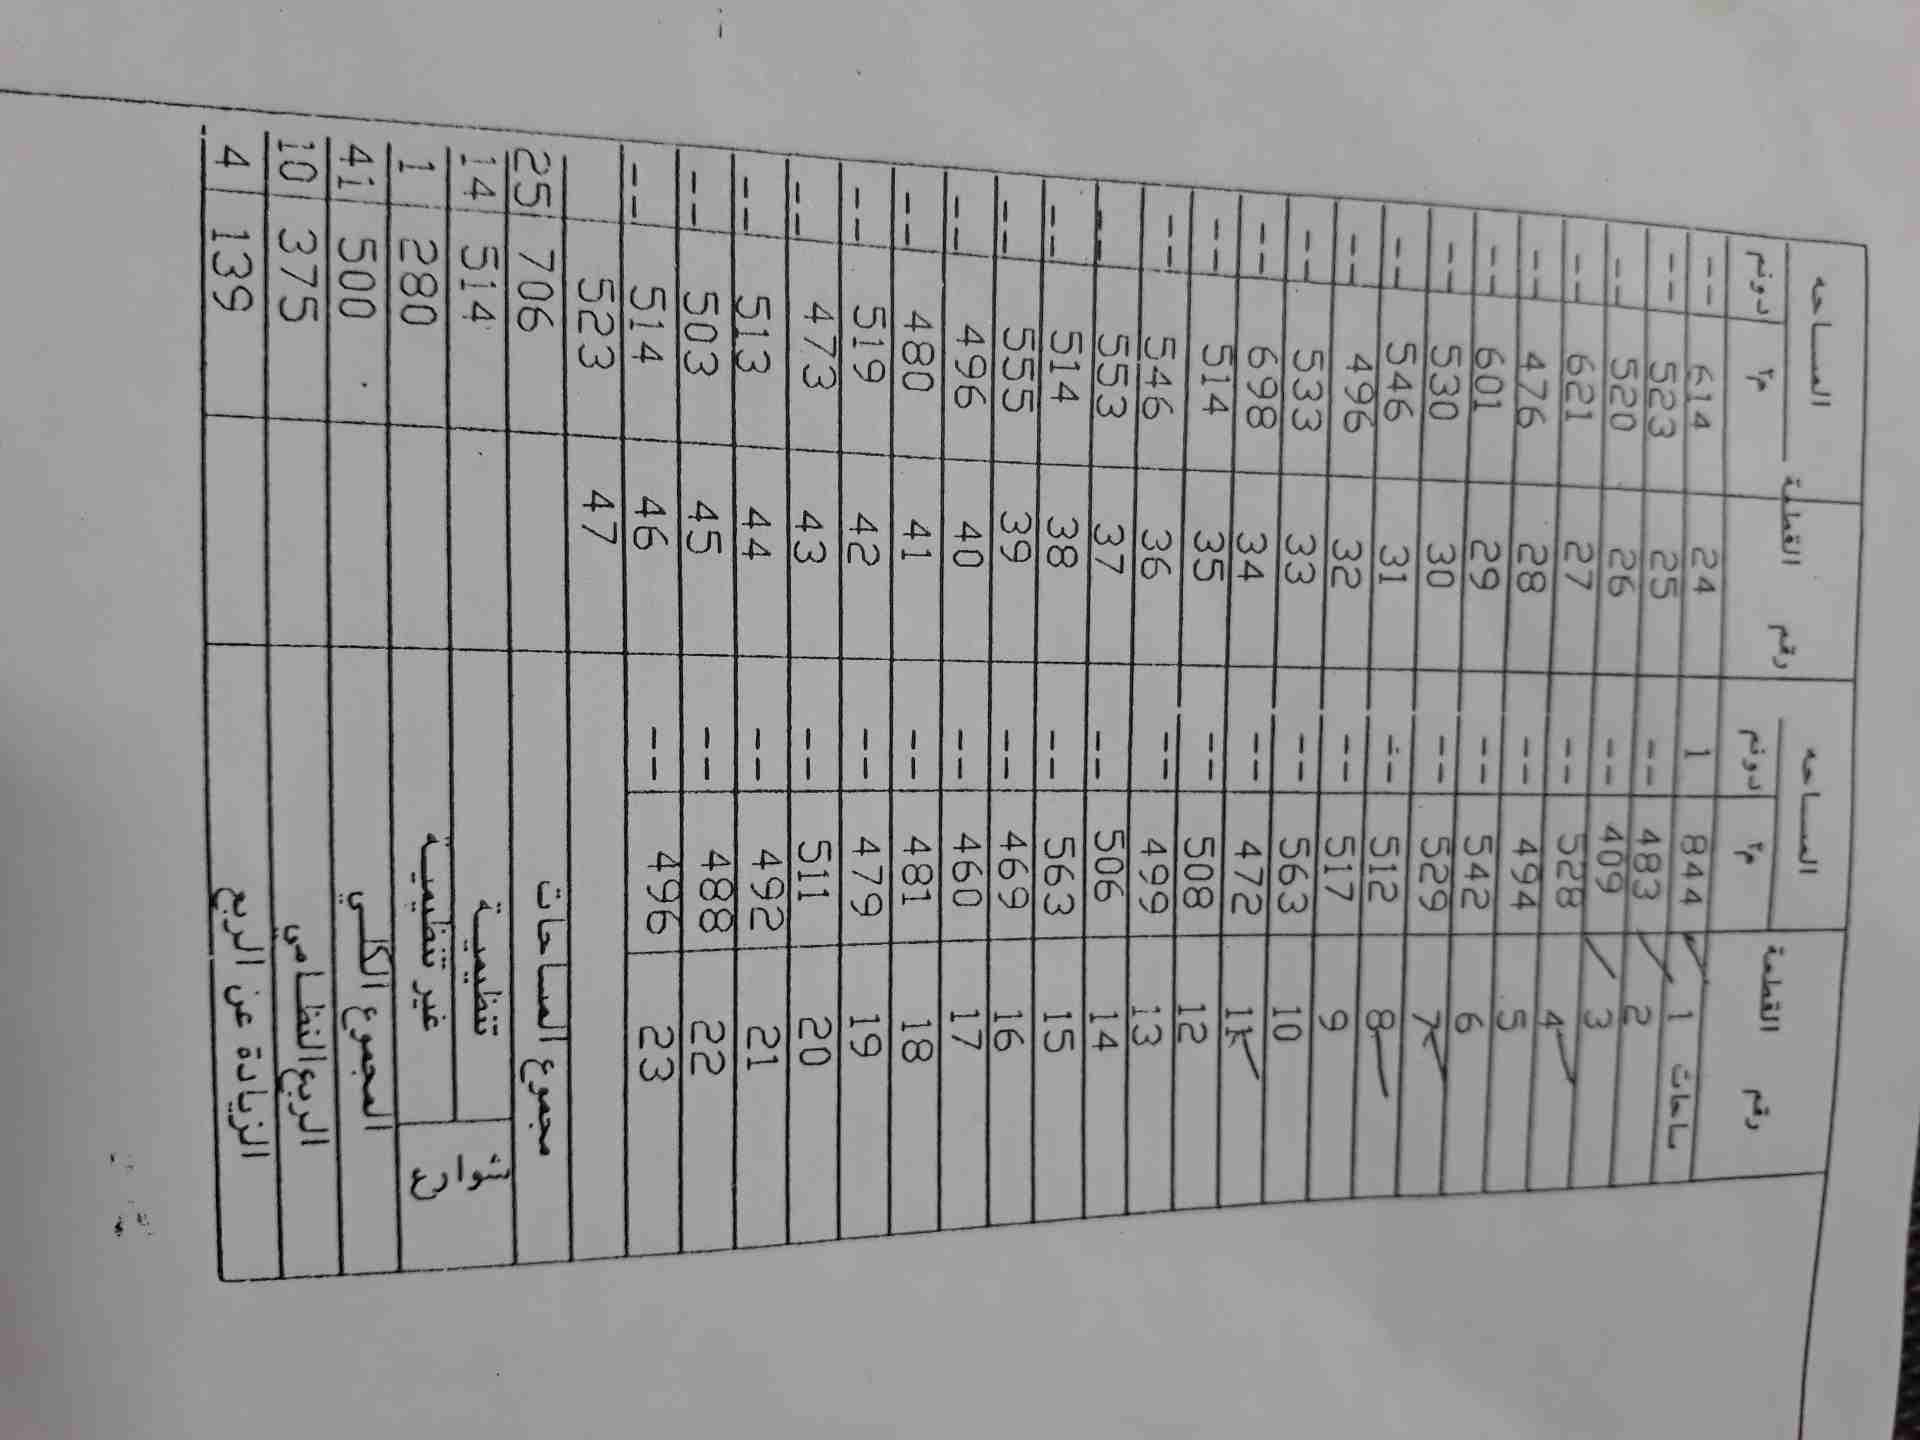 رقم القطعة المساحه رقم القطعة المساحه
م٢ دونم م٢ دونم
ساحات 1 844 1 24 614 --
2 483 -- 25 523 --
3 409 -- 26 520 --
4 528 -- 27 621 --
5 494 -- 28 476 --
6 542 -- 29 601 --
7 529 -- 30 530 --
8 512 -- 31 546 --
9 517 -- 32 496 --
10 563 -- 33 533 --
11 472 -- 34 698 --
12 508 -- 35 514 --
13 499 -- 36 546 --
14 506 -- 37 553 --
15 563 -- 38 514 --
16 469 -- 39 555 --
17 460 -- 40 496 --
18 481 -- 41 480 --
19 479 -- 42 519 --
20 511 -- 43 473 --
21 492 -- 44 513 --
22 488 -- 45 503 --
23 496 -- 46 514 --
47 523
مجموع المساحات 706 25
شوارع تنظيمية 514 14
غير تنظيمية 280 1
المجموع الكلي 500 41
الربع النظامي 375 10
الزيادة عن الربع 139 4